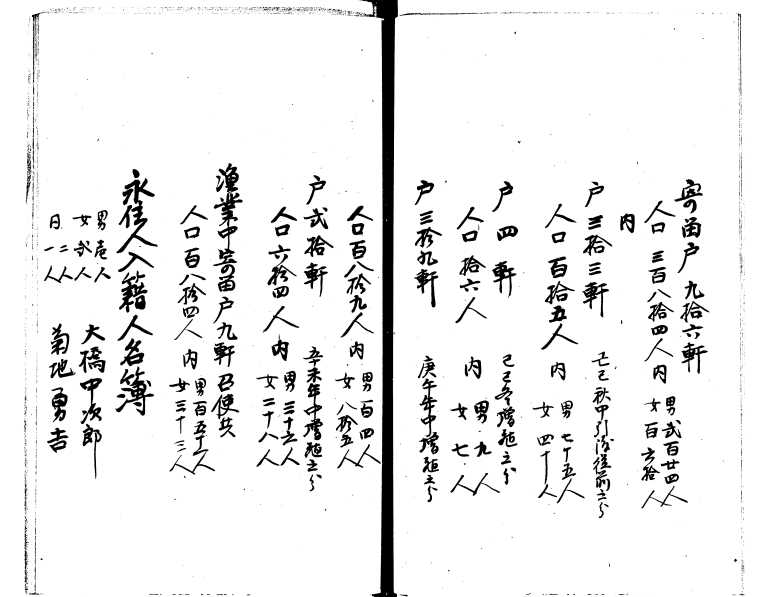 寄留戸九拾六軒
人口三百八拾四人内 男弐百廿四人 女百六拾人
内
戸三拾三軒 己巳秋中引渡従前之分
人口百拾五人内 男七十五人 女四十人
戸四軒 己巳冬増殖之分
人口拾六人 内 男九人 女七人
戸三拾九軒 庚午年中増殖之分
人口百八拾九人内 男百四人 女八拾五人
戸弐拾軒 辛未年中増殖之分
人口六拾四人内 男三十六人 女二十八人
漁業中寄留戸九軒召使共
人口百八拾四人内 男百五十一人 女三十三人
永住人入籍人名簿
男壱人 女弐人 大橋甲次郎
日二人 一人 菊地勇吉